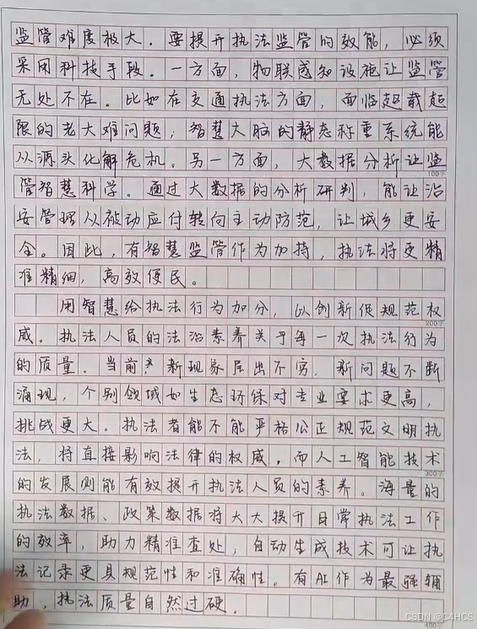 监管难度极大。要提升执法监管的效能，必须
采用科技手段。一方面，物联感知设施让监管
无处不在。比如在交通执法方面，面临超载超
限的老大难问题，智慧大脑的静态称重系统能
从源头化解危机。另一方面，大数据分析让监
100字
管智慧科学。通过大数据的分析研判，能让治
安管理从被动应付转向主动防范，让城乡更安
全。因此，有智慧监管作为加持，执法将更精
准精细，高效便民。
用智慧给执法行为加分，以创新促规范权
200字
威。执法人员的法治素养关乎每一次执法行为
的质量。当前，新现象层出不穷，新问题不断
涌现，个别领域如生态环保对专业要求更高，
挑战更大。执法者能不能严格公正规范文明执
法，将直接影响法律的权威。而人工智能技术
300字
的发展则能有效提升执法人员的素养。海量的
执法数据、政策数据将大大提升日常执法工作
的效率，助力精准查处，自动生成技术可让执
法记录更具规范性和准确性。有AI作为最强辅
助，执法质量自然过硬。
CSDN @C4HCS
400字